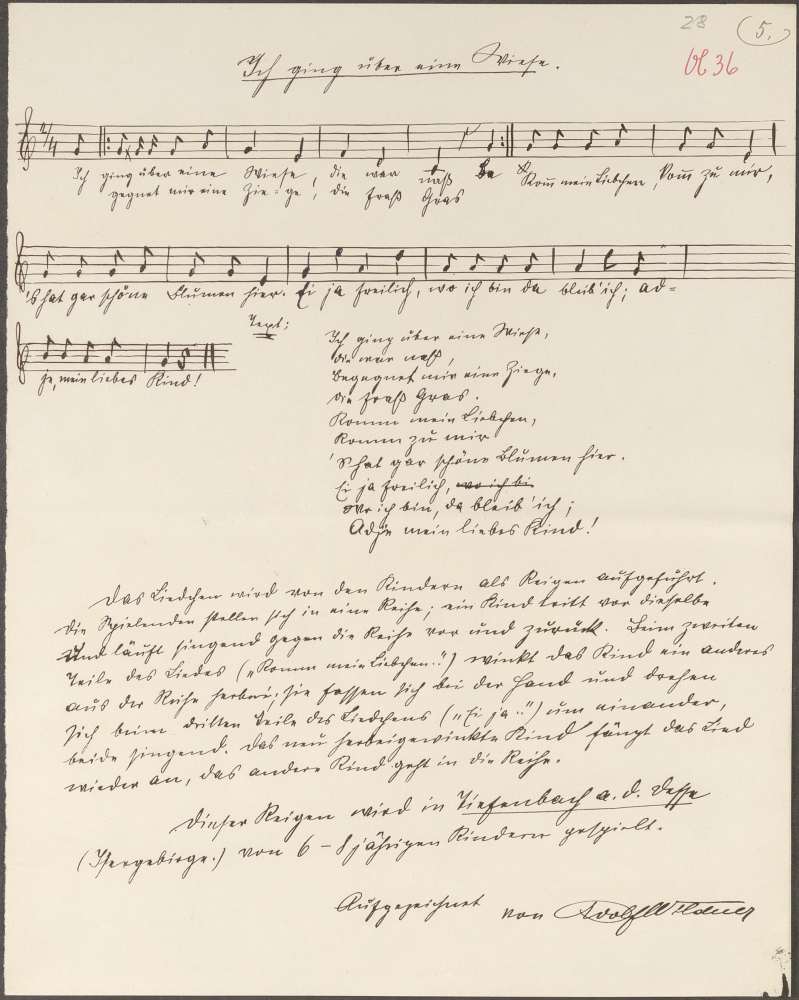 28
5.
VL 36
Ich ging über eine Wiese.
2/4
Ich ging über eine Wiese, die war naß Be Kom̄ mein Liebchen, kom̄ zu mir,
gegnet mir eine Zie=ge, die fraß Gras
's hat gar schöne Blumen hier. Ei ja freilich, wo ich bin da bleib' ich; Ad=
je, mein liebes Kind!
Text:
Ich ging über eine Wiese,
die war naß,
Begegnet mir eine Ziege,
die fraß Gras.
Komm mein Liebchen,
Komm zu mir
'S hat gar schöne Blumen hier.
Ei ja freilich, wo ich bi
Wo ich bin, da bleib' ich;
Adje mein liebes Kind!
Das Liedchen wird von den Kindern als Reigen aufgeführt.
Die Spielenden stellen sich in eine Reihe; ein Kind tritt vor dieselbe
und läuft singend gegen die Reihe vor und zurück. Beim zweiten
Teile des Liedes („Komm mein Liebchen..") winkt das Kind ein anderes
aus der Reihe herbei; sie fassen sich bei der Hand und drehen
sich beim dritten Teile des Liedchens („Ei ja..") um einander,
beide singend. Das neu herbeigewinkte Kind fängt das Lied
wieder an, das andere Kind geht in die Reihe.
Dieser Reigen wird in Tiefenbach a. d. Desse
(Isergebirge.) von 6 – 8 jährigen Kindern gespielt.
Aufgezeichnet von Adolf Wildner